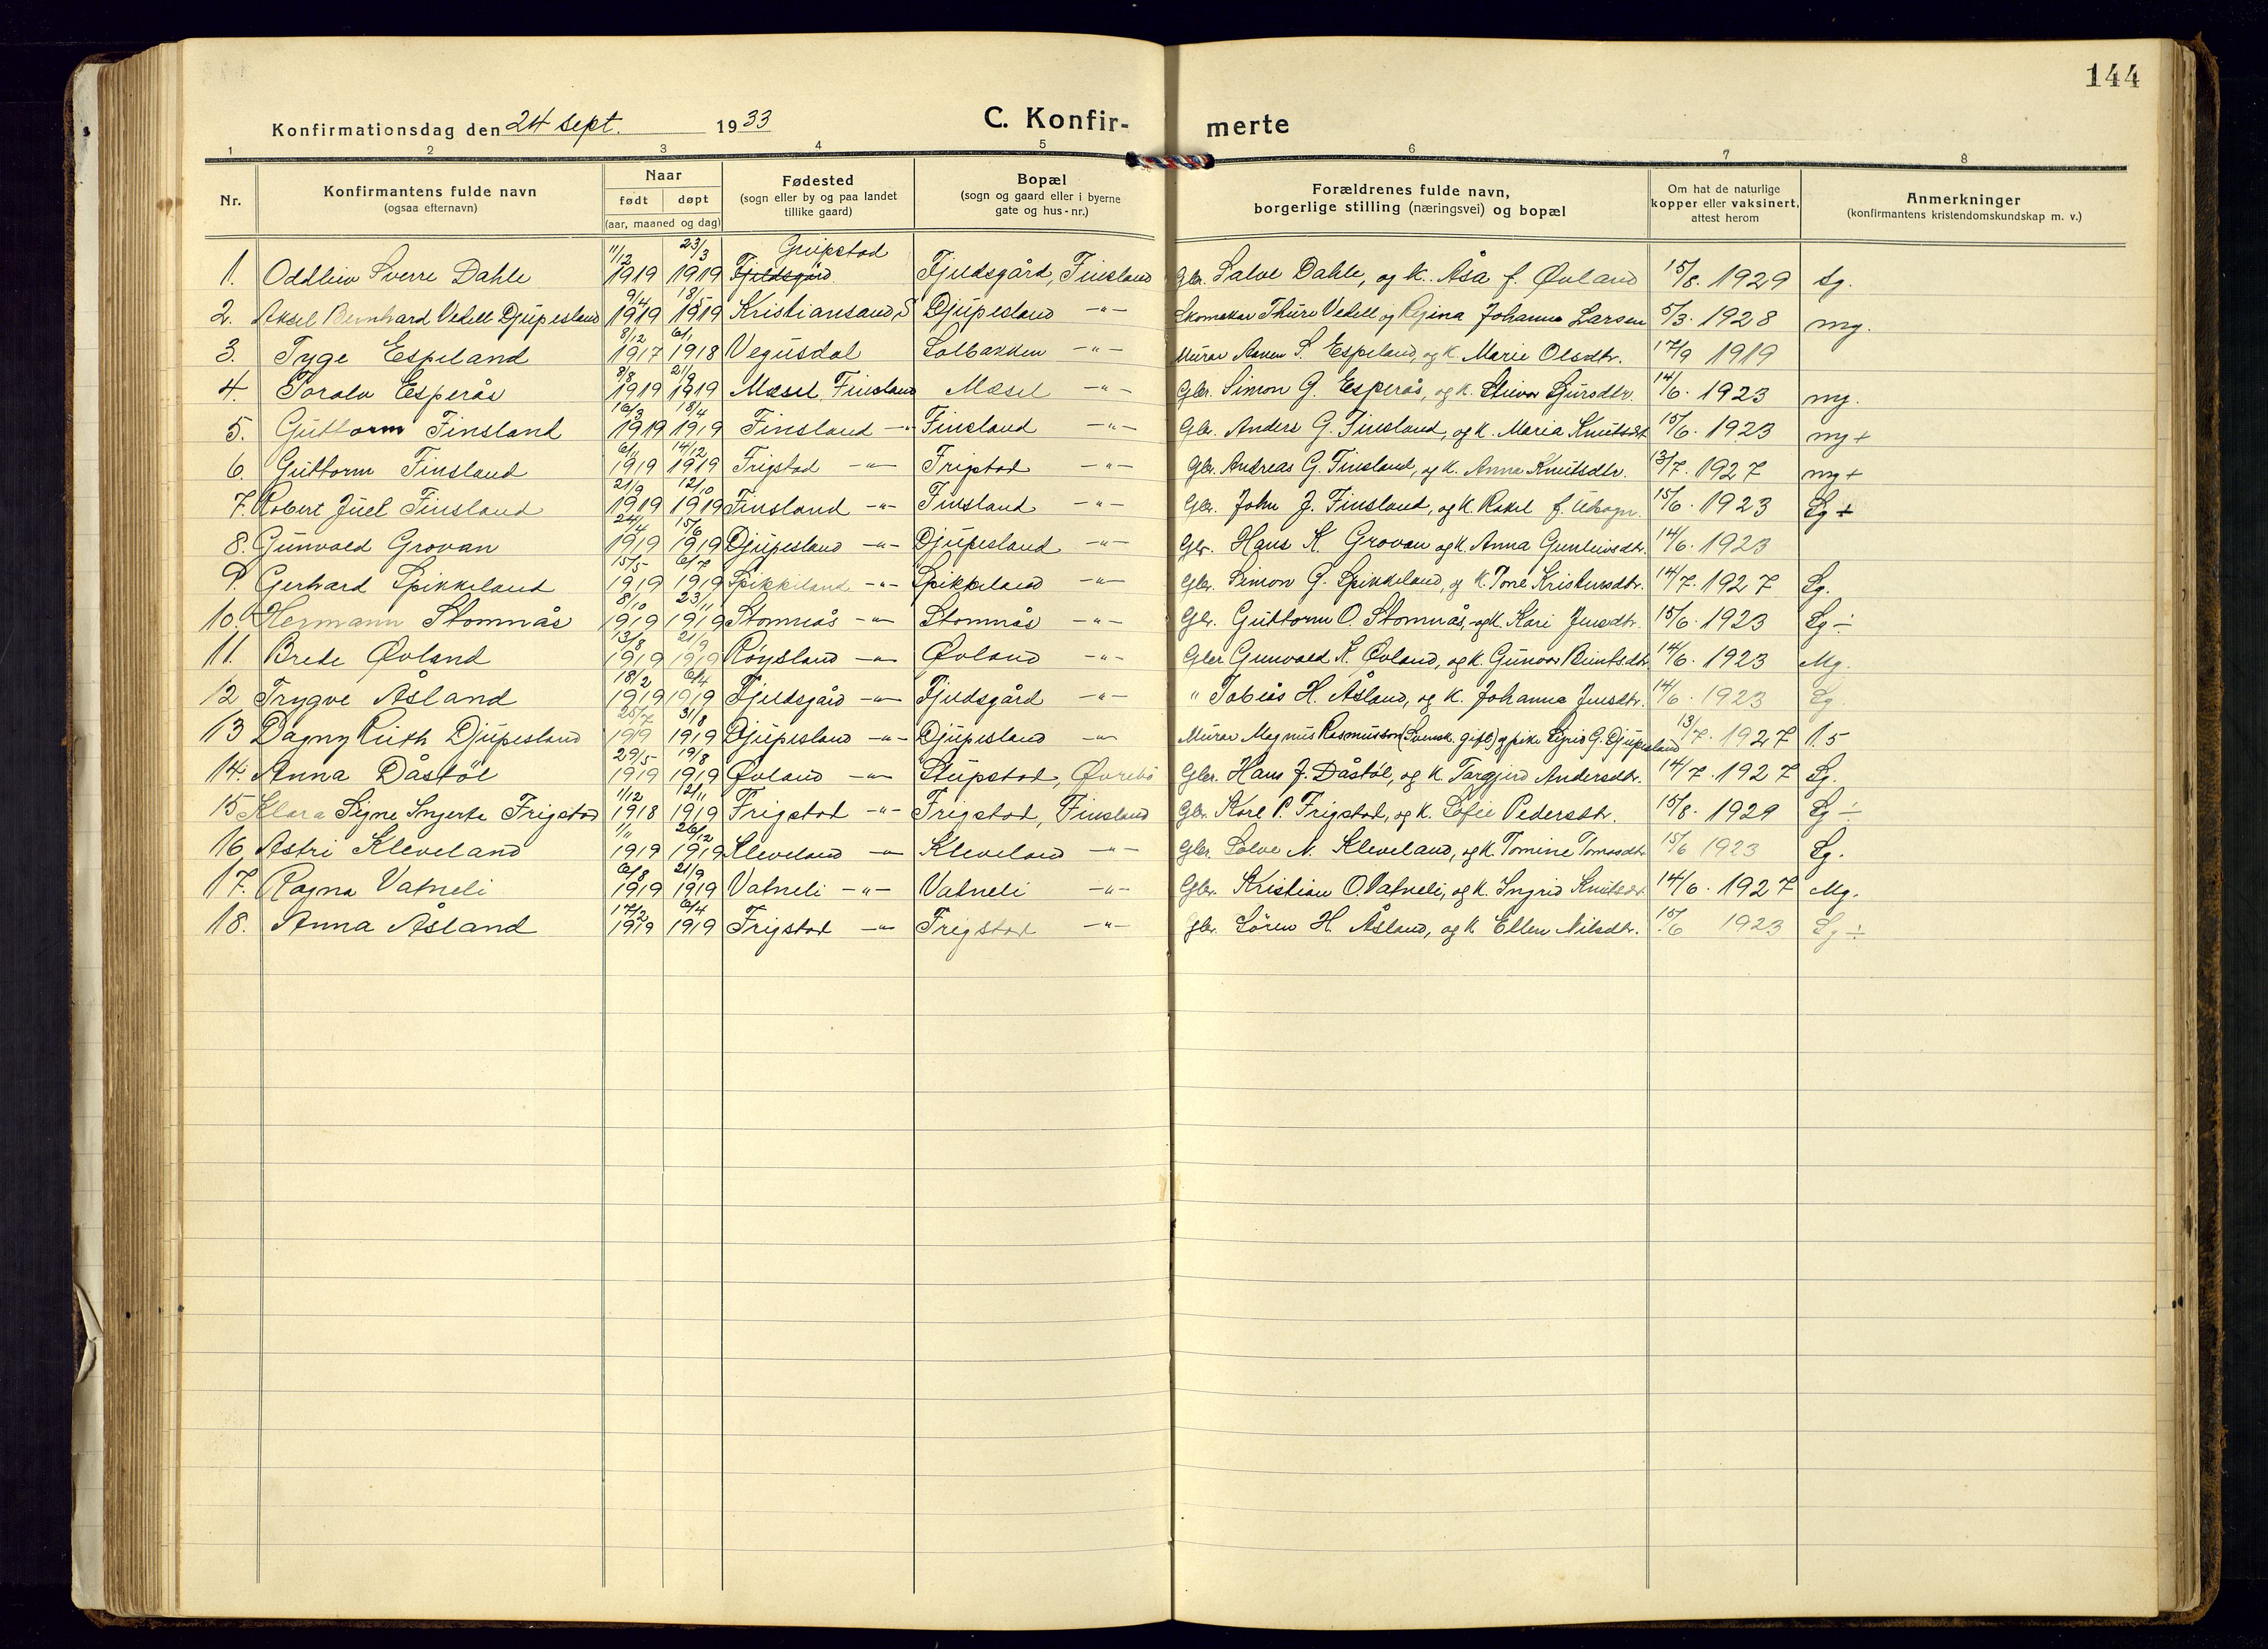 144
Konfirmationsdag den 24 sept. 1933 C. Konfir- merte
1 2 3 4 5 6 7 8
Nr. Konfirmantens fulde navn (ogsaa efternavn) Naar født døpt (aar, maaned og dag) Fødested (sogn eller by og paa landet tillike gaard) Bopæl (sogn og gaard eller i byerne gate og hus-nr.) Forældrenes fulde navn, borgerlige stilling (næringsvei) og bopæl Om hat de naturlige kopper eller vaksinert, attest herom Anmerkninger (konfirmantens kristendomskundskap m. v.)
1. Oddleiv Sverre Dahle 11/12 1919 23/3 1919 Gripstad Fjeldsgård Fjeldsgård, Finsland Gbr. Salve Dahle, og k. Åsa f. Øvland 15/8. 1929 Sg.
2. Aksel Bernhard Vedell Djupesland 9/4 1919 18/5 1919 Kristiansand S Djupesland -"- Skomaker Thure Vedell og Regina Johanna Larsen 5/3. 1928 mg.
3. Tyge Espeland 8/12 1917 6/1 1918 Vegusdal Solbakken -"- Murar Aanen S. Espeland, og k. Marie Olsdtr. 17/9 1919
4. Toralv Esperås 8/8 1919 21/9 1919 Mæsel, Finsland Mæsel -"- Gbr. Simon G. Esperås, og k. Sjursdtr. 14/6. 1923 mg.
5. Guttorm Finsland 16/3 1919 18/4 1919 Finsland -"- Finsland -"- Gbr. Anders G. Finsland, og k. Maria Knutsdt 15/6. 1923 mg +
6. Guttorm Finsland 6/11 1919 14/12 1919 Frigstad -"- Frigstad -"- Gbr. Andreas G. Finsland, og k. Anna Knutsdtr. 13/7. 1927 mg +
7. Robert Juel Finsland 21/9 1919 12/10 1919 Finsland -"- Finsland -"- Gbr. John J. Finsland, og k. Rakel f. 15/6. 1923 Sg +
8. Gunvald Grovan 24/4 1919 15/6 1919 Djupesland -"- Djupesland -"- Gbr. Hans K. Grovan og k. Anna Gunleivsdtr. 14/6. 1923
9. Gerhard Spikkeland 15/5 1919 6/7 1919 Spikkeland -"- Spikkeland -"- Gbr. Simon G. Spikkeland, og k. Tone Kristensdtr. 14/7. 1927 Sg.
10. Hermann Stomnås 8/10 1919 23/11 1919 Stomnås -"- Stomnås -"- Gbr. Guttorm O. Stomnås, og k. Kari Jensdtr. 15/6. 1923 Sg ÷
11. Brede Øvland 13/8 1919 21/9 1919 Røysland -"- Øvland -"- Gbr Gunvald K. Øvland, og k. Gunvor Berntsdtr 14/6. 1923 Mg.
12 Trygve Åsland 18/2 1919 6/4 1919 Fjeldsgård -"- Fjeldsgård -"- " Tobias H. Åsland, og k. Johanna Jensdtr. 14/6. 1923 Sg.
13 Dagny Ruth Djupesland 25/7 1919 31/8 1919 Djupesland -"- Djupesland -"- Murar Magnus Rasmusson (Svensk. gift) og pike Sigrid G. Djupesland 13/7. 1927 1.5
14. Anna Dåstøl 29/5 1919 19/8 1919 Øvland -"- Stupstad, Øvrebø Gbr. Hans J. Dåstøl, og k Targjerd Andersdtr. 14/7. 1927 Sg.
15 Klara Signe Ingerte Frigstad 1/12 1918 1919 Frigstad -"- Frigstad, Finsland Gbr. Karl P. Frigstad, og k. Sofie Pedersdtr. 15/8. 1929 Sg ÷
16 Astri Kleveland 1/11 1919 26/12 1919 Kleveland -"- Kleveland -"- Gbr. Salve N. Kleveland, og k. Tomine Tomasdtr 15/6 1923 Sg.
17. Ragna Vatneli 6/8 1919 21/9 1919 Vatneli -"- Vatneli -"- Gbr. Kristian O. Vatneli, og k. Ingrid Knutsdtr. 14/6. 1927 Mg.
18. Anna Åsland 17/2 1919 6/4 1919 Frigstad -"- Frigstad -"- Gbr. Søren H. Åsland, og k Ellen Nilsdtr. 15/6 1923 Sg ÷